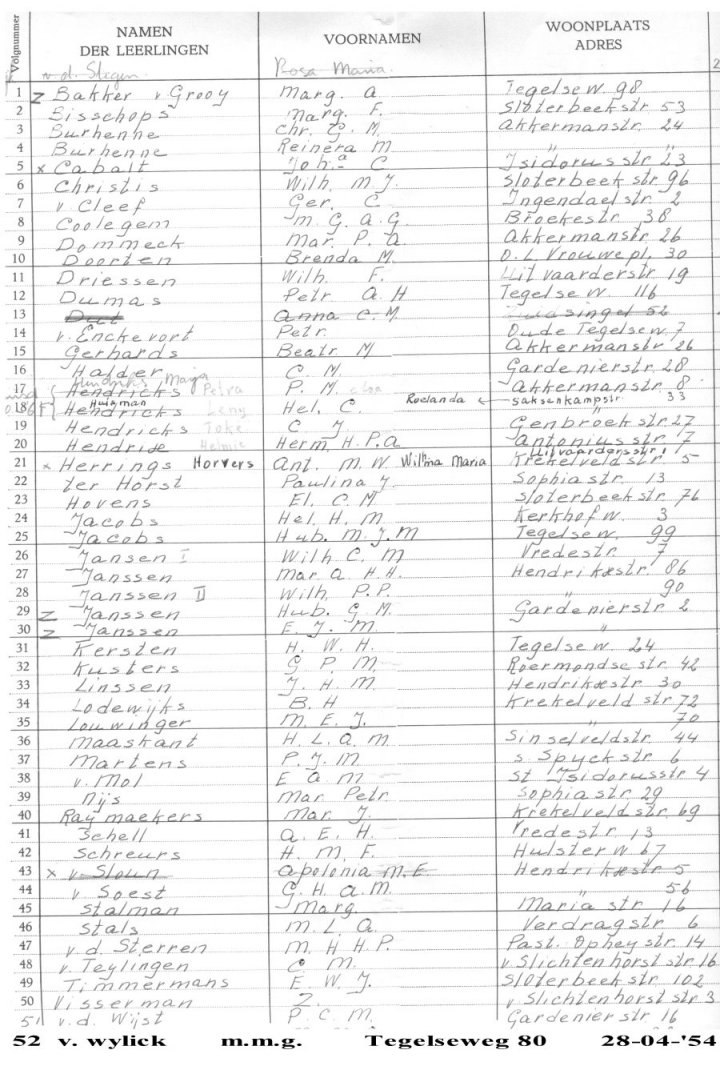 Volgnummer NAMEN DER LEERLINGEN VOORNAMEN WOONPLAATS ADRES
v. d. Stegen Rosa Maria 2
1 z Bakker v Grooy Marg. a Tegelse w. 98
2 Bisschops Marg. F. Sloterbeekstr 53
3 Burhenne Chr. G. M. akkermanstr. 24
4 Burhenne Reinera M. " "
5 x Cabalt Joh.a C Isidorusstr 23
6 Christis Wilh. M J. Sloterbeekstr. 96
7 v. Cleef Ger. C. Ingendaelstr. 2
8 Coolegem M. G. a. G. Broekestr. 38
9 Dommeck Mar. P. a. akkermanstr. 26
10 Doorten Brenda M. O. L. Vrouwepl. 30
11 Driessen Wilh. F. Uitvaarderstr 19
12 Dumas Petr. a. H Tegelse w. 116
13 Dut Anna C. M. singel 52
14 v. Enckevort Petr. Oude Tegelsew. 7
15 Gerhards Beatr. M akkermanstr 26
16 Halder C. M. Gardenierstr. 28
Hendriks Marja
17 Hendricks Petra P. M. akkermanstr. 8
Huisman Roelanda saksenkampstr. 33
18 Hendricks Leny Hel. C. "
19 Hendricks Toke C. J. Genbroekstr. 27
20 Hendrise Helmie Herm. H. P. a Antonius str. 7
Uitvaardersstr. 1
21 x Herrings Horvers Ant. M. W. Wilma Maria Krekelveldstr. 5
22 ter Horst Paulina J. Sophiastr. 13
23 Hovens El. C. M Sloterbeekstr. 76
24 Jacobs Hel. H. M. Kerkhof w. 3
25 Jacobs Hub. M. J. M Tegelsew. 99
26 Jansen I Wilh C. M Vredestr. 7
27 Janssen Mar. a. H. H. Hendrikxstr. 86
28 Janssen II Wilh. P. P. " 90
29 z Janssen Hub. G. M. Gardenierstr. 2
30 z Janssen E. J. M. "
31 Kersten H. W. H. Tegelse w. 24
32 Kusters G. P. M. Roermondse str. 42
33 Linssen J. H. M. Hendrikxstr. 30
34 Lodewijks B. H Krekelveld str. 72
35 Louwinger M. E. J. " 70
36 Maaskant H. L. a. M. Sinselveldstr. 44
37 Martens P. J. M. s Spyckstr. 6
38 v. Mol E a M. St Isidorusstr. 4
39 Nijs Mar Petr. Sophiastr 29
40 Raymaekers Mar. J. Krekelveldstr. 69
41 Schell a. E. H. Vredestr. 13
42 Schreurs H. M. F. Hulster w. 67
43 x v. Sloun apolonia M. E. Hendrikxstr. 5
44 v Soest G. H. a. M. " 56
45 Stalman Marg. Maria str 16
46 Stals M. L. a. Verdragstr. 6
47 v. d. Sterren M. H H. P. Past. Opheystr. 14
48 v. Teylingen C M. v. Slichtenhorst str. 16
49 Timmermans E. W. J. Sloterbeekstr. 102
50 Visserman Z. v Slichtenhorst str. 3
51 v. d. Wijst P. C. M. Gardenierstr. 16
52 v. wylick m.m.g. Tegelseweg 80 28-04-'54